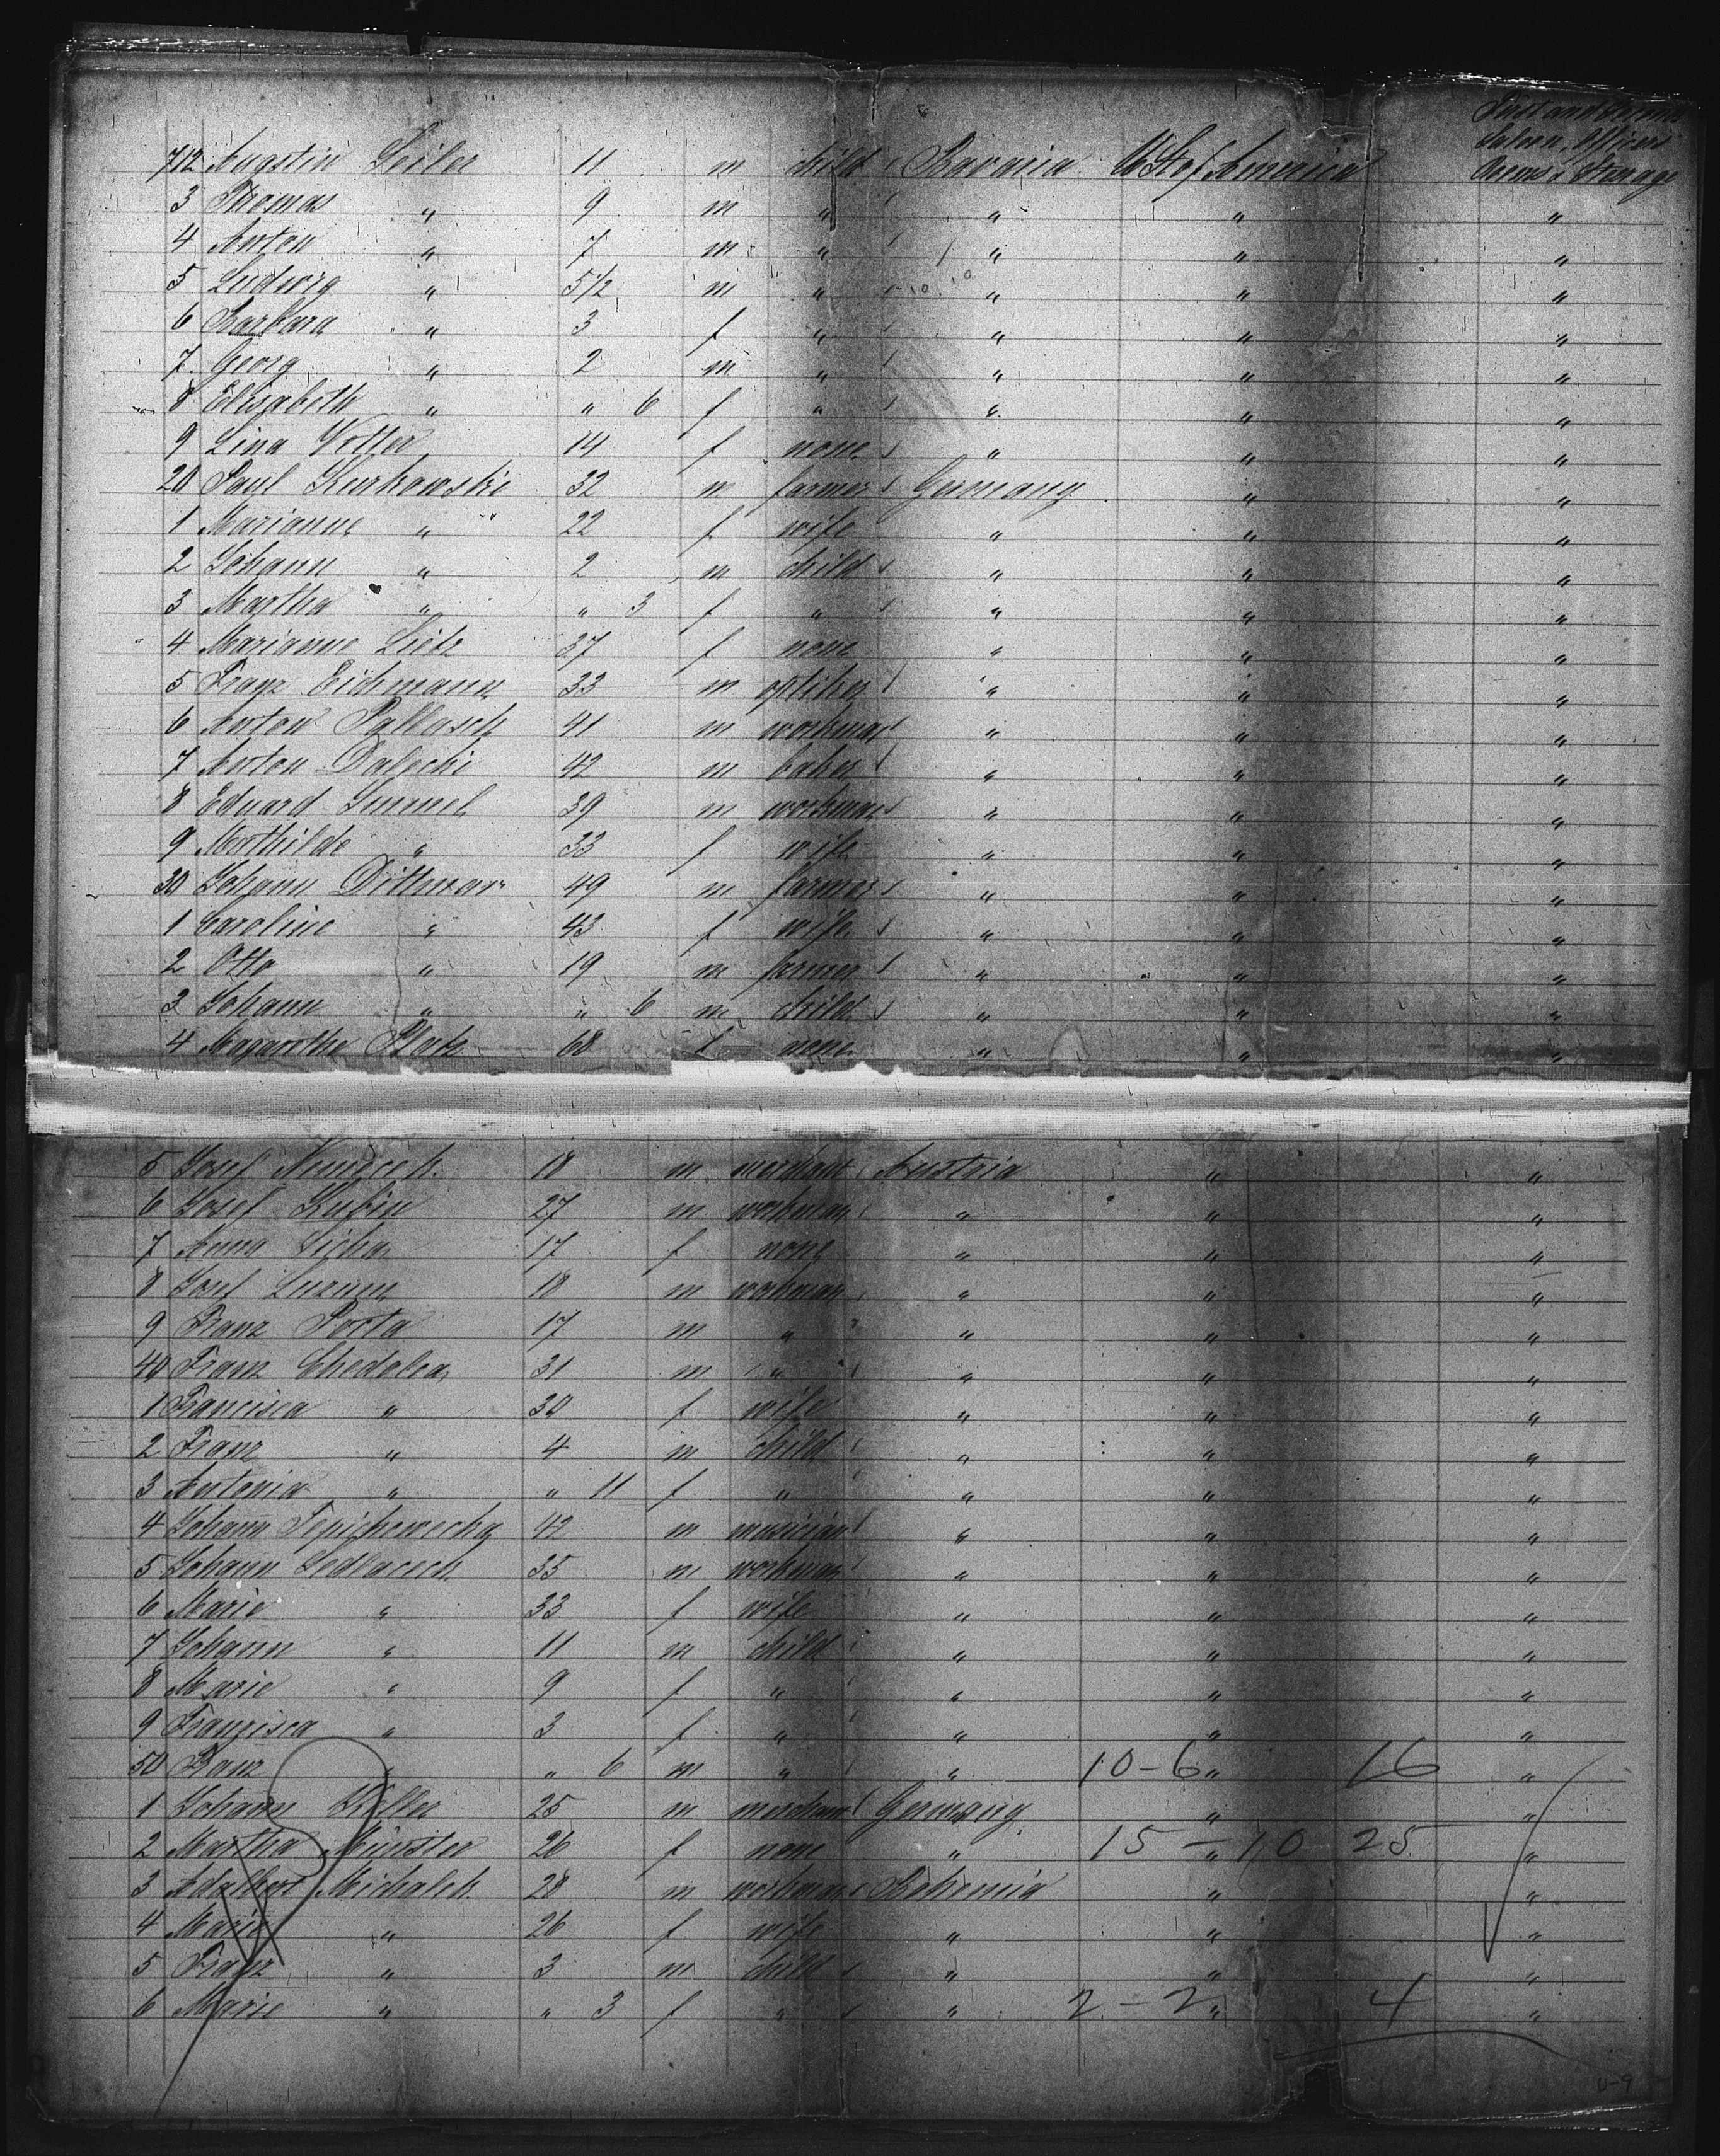 First and Second
Saloon, Officers
Rooms & Sterage
712 Augstin Seiler 11 m child Bavaria U St of America
3 Thomas " 9 m " " " "
4 Anton " 7 m " " " "
5 Ludwig " 5 1/2 m " " " "
6 Barbara " 3 f " " " "
7 Georg " 2 m " " " "
8 Elisabeth " " 6 f " " " "
9 Lina Votter 14 f none " " "
20 Paul Kurkowski 32 m farmer Germany " "
1 Marianne " 22 f wife " " "
2 Johann " 2 m child " " "
3 Martha " " 3 f " " " "
4 Marianne Lietz 37 f none " " "
5 Franz Eichmann 33 m optiker " " "
6 Anton Pallasch 41 m workman " " "
7 Anton Dalecki 42 m baker " " "
8 Eduard Simmel 39 m workman " " "
9 Mathilde " 33 f wife " " "
30 Johann Dittmar 49 m farmer " " "
1 Caroline " 43 f wife " " "
2 Otto " 19 m farmer " " "
3 Johann " " 6 m child " " "
4 Magarethe Platz 68 f none " " "
5 Josef 18 m merchant Austria " "
6 Josef Kubin 27 m workman " " "
7 Anna Sicha 17 f none " " "
8 Josef 18 m workman " " "
9 Franz Porta 17 m " " " "
40 Franz Chedolea 31 m " " " "
1 Francisca " 30 f wife " " "
2 Franz " 4 m child " " "
3 Antonia " " 11 f " " " "
4 Johann 42 m musician " " "
5 Johann Sedlaceck 35 m workman " " "
6 Marie " 33 f wife " " "
7 Johann " 11 m child " " "
8 Marie " 9 f " " " "
9 Franzisca " 3 f " " " "
50 Franz " " 6 m " " 10-6 " 16 "
1 Johann Keller 25 m merchant Germany " "
2 Martha Münster 26 f none " 15-10 " 25 "
3 Adalbert Michaleck 28 m workman Bohemia " "
4 Marie " 26 f wife " " "
5 Franz " 3 m child " " "
6 Marie " " 3 f " " 2-2 " 4 "